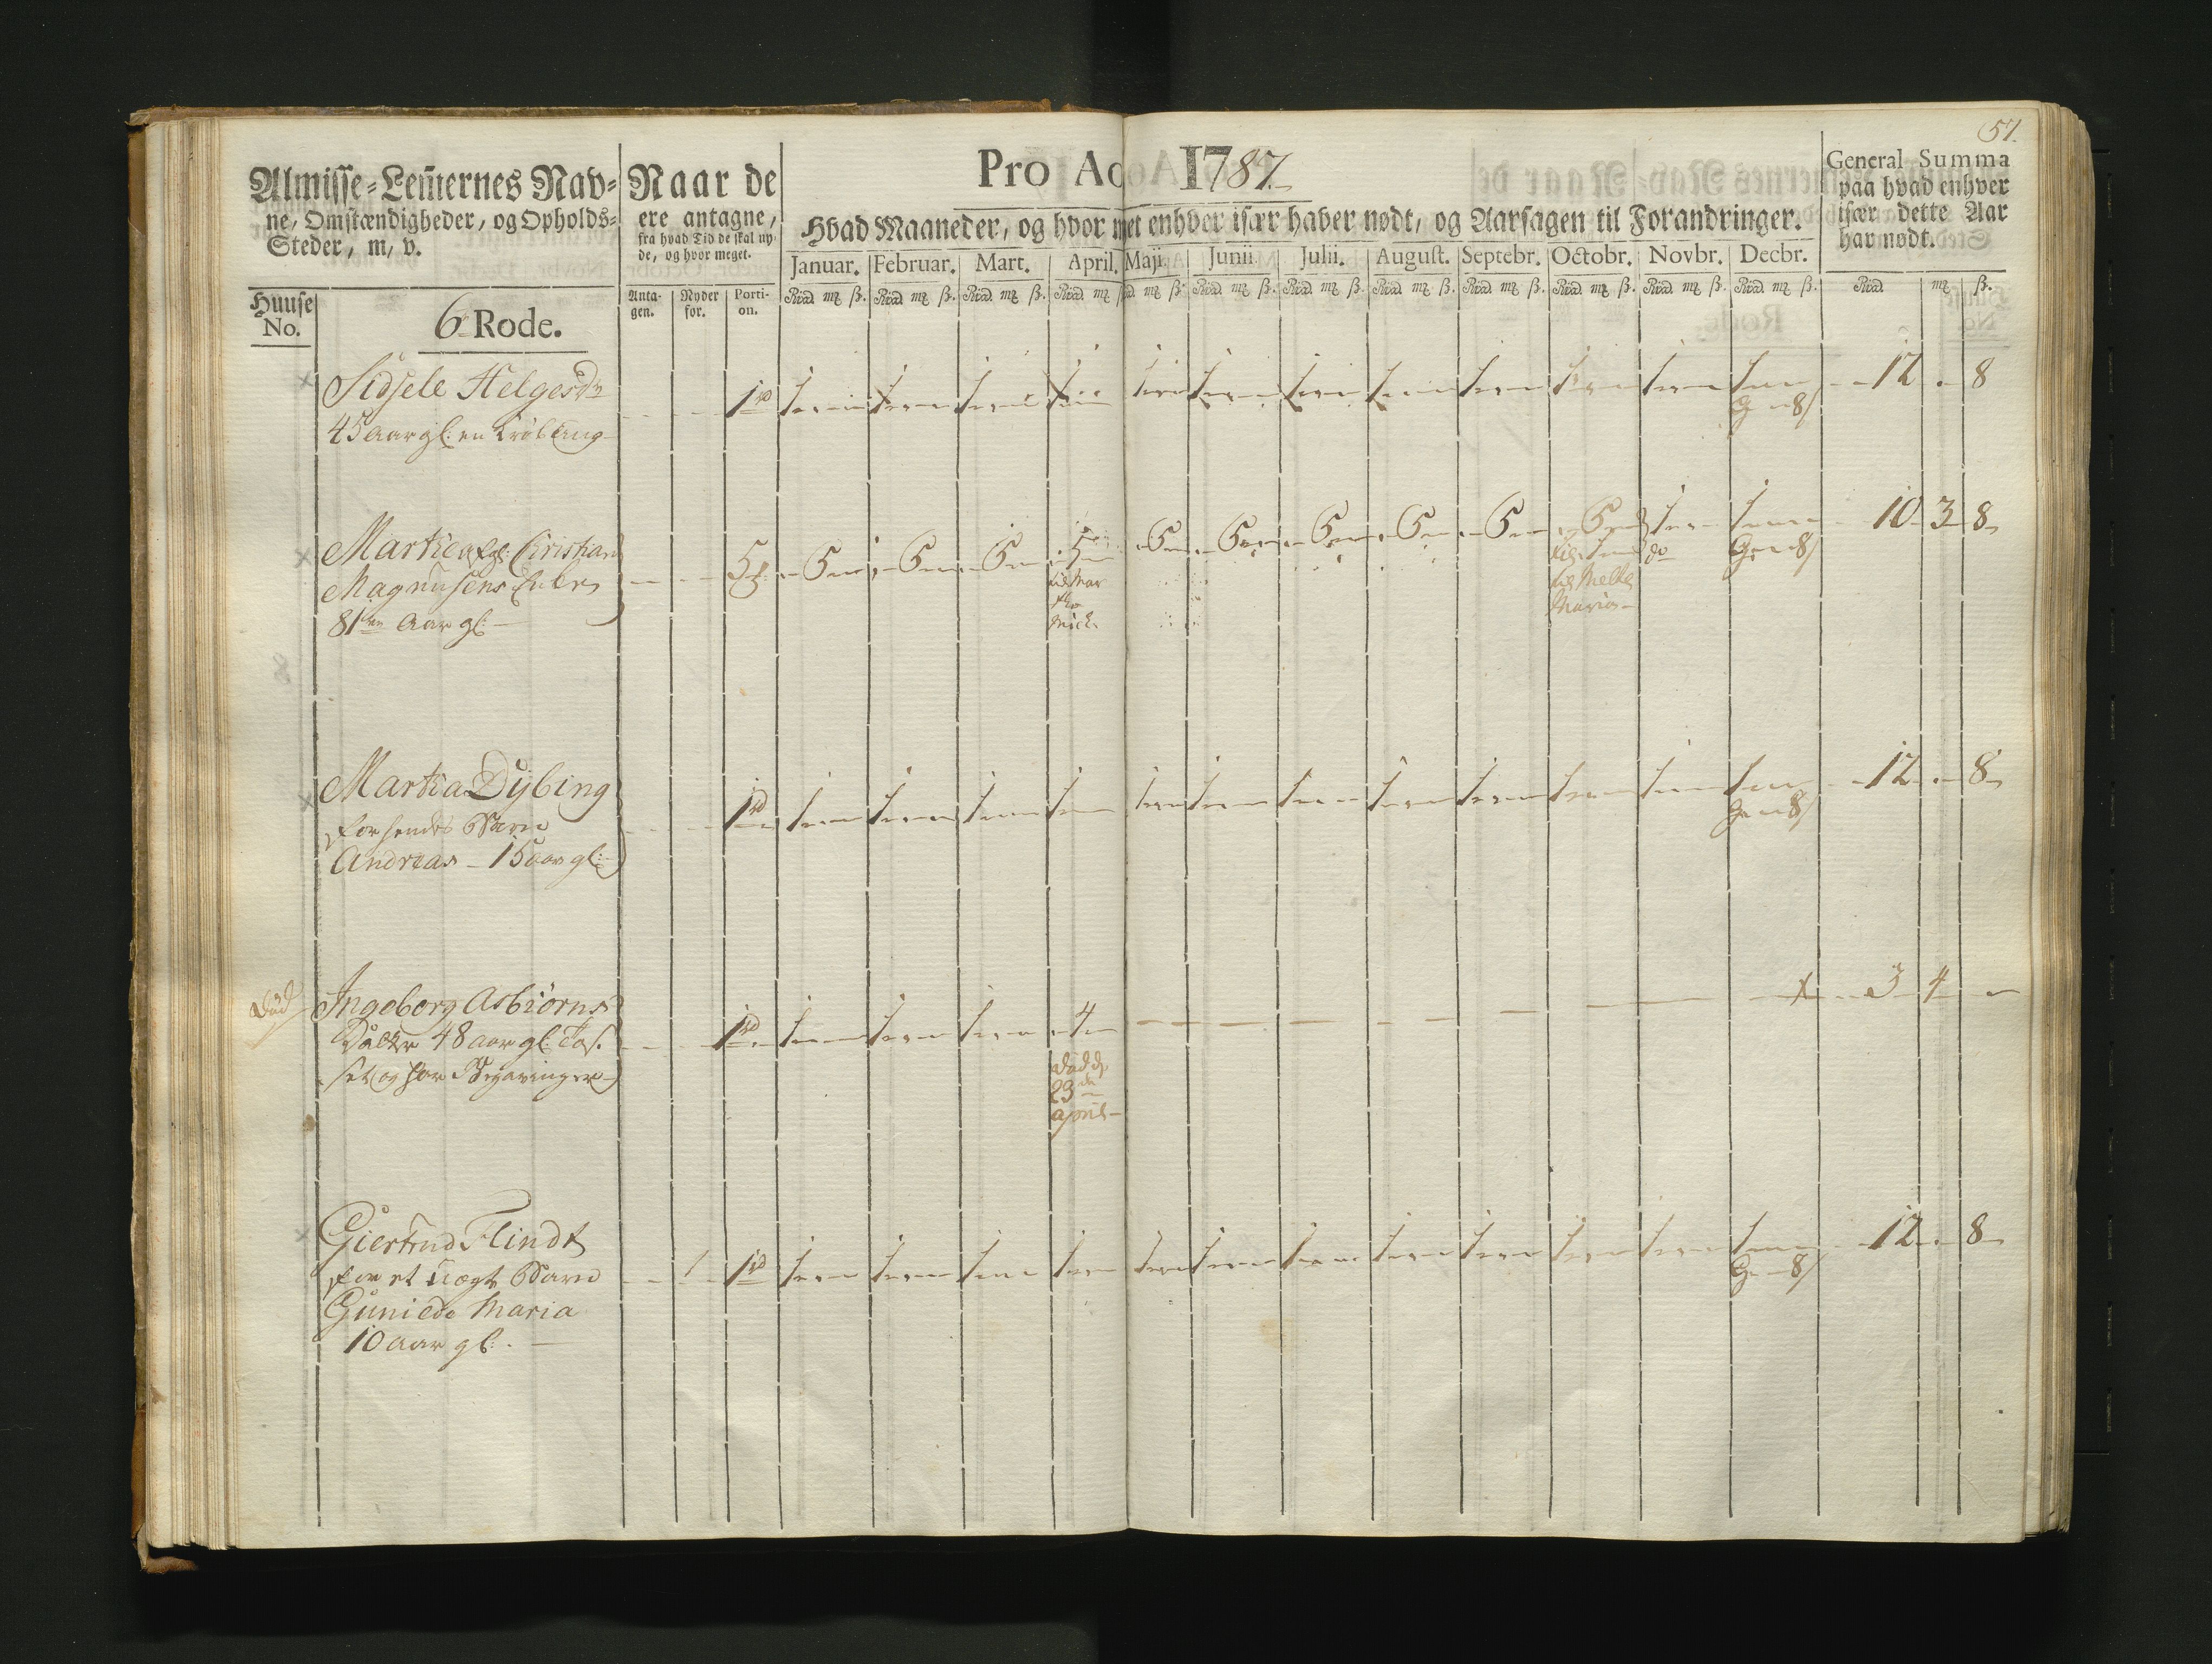 57.
Almisse-Lemmernes Nav-
ne, Omstændigheder, og Opholds-
Steder, m, v.
Naar de
ere antagne,
fra hvad Tid de skal ny-
de, og hvor meget.
Pro Ao 1787.
Hvad Maaneder, og hvor met enhver især haver nødt, og Aarsagen til Forandringer.
General Summa
paa hvad enhver
især dette Aar
har nødt.
Januar. Februar. Mart. April. Maji. Junii. Julii. August. Septebr. Octobr. Novbr. Decbr.
Huuse
No.
6 Rode.
Anta-
gen.
Nyder
for.
Porti-
on.
Rd mk ß. Rd mk ß. Rd mk ß. Rd mk ß. Rd mk ß. Rd mk ß. Rd mk ß. Rd mk ß. Rd mk ß. Rd mk ß. Rd mk ß. Rd mk ß. Rd mk ß.
Sidsele Helgesdr 1rd 1 1 1 1 1 1 1 1 1 1 1 1 12 - 8
45 aar gl: en Krøbling
G 8ß
Marthe afgl: Christian 5 5 5 5 5 5 5 5 5 5 1 1 10 3 8
Magnusens Enke
81 Aar gl:
til Mar
the
Mich.
til
Melke
Maria
do
G 8ß
Martha Dybing 1rd 1 1 1 1 1 1 1 1 1 1 1 1 12 - 8
for hendes Barn
Andreas - 15 aar gl:
G 8ß
død
Ingeborg Asbiørns 1rd 1 1 1 4 3 4 -
Datter 48 aar gl:
og har
død d
23de
april
Giertrud Flindt 1 1rd 1 1 1 1 1 1 1 1 1 1 1 1 12 - 8
for et Uægte Barn
Gunilde Maria
10 aar gl:
G 8ß